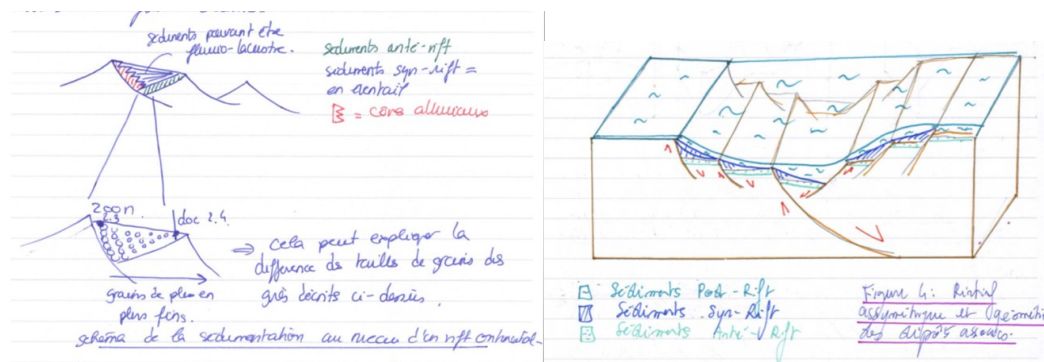 sédiments pouvant être
fluvio-lacustre.
sédiments anté-rift
sédiments syn-rift =
en éventail
= cône alluviaux
zoom.
2.3
doc 2.4.
⇒ cela peut expliquer la
différence de tailles de grains des
grès décrits ci-dessus.
grains de plus en
plus fins.
schéma de la sédimentation au niveau d'un rift continental
Sédiments Post-Rift
Sédiments Syn-Rift
Sédiments Anté-Rift
Figure 4:
assymétrique et géométrie
des dépôts